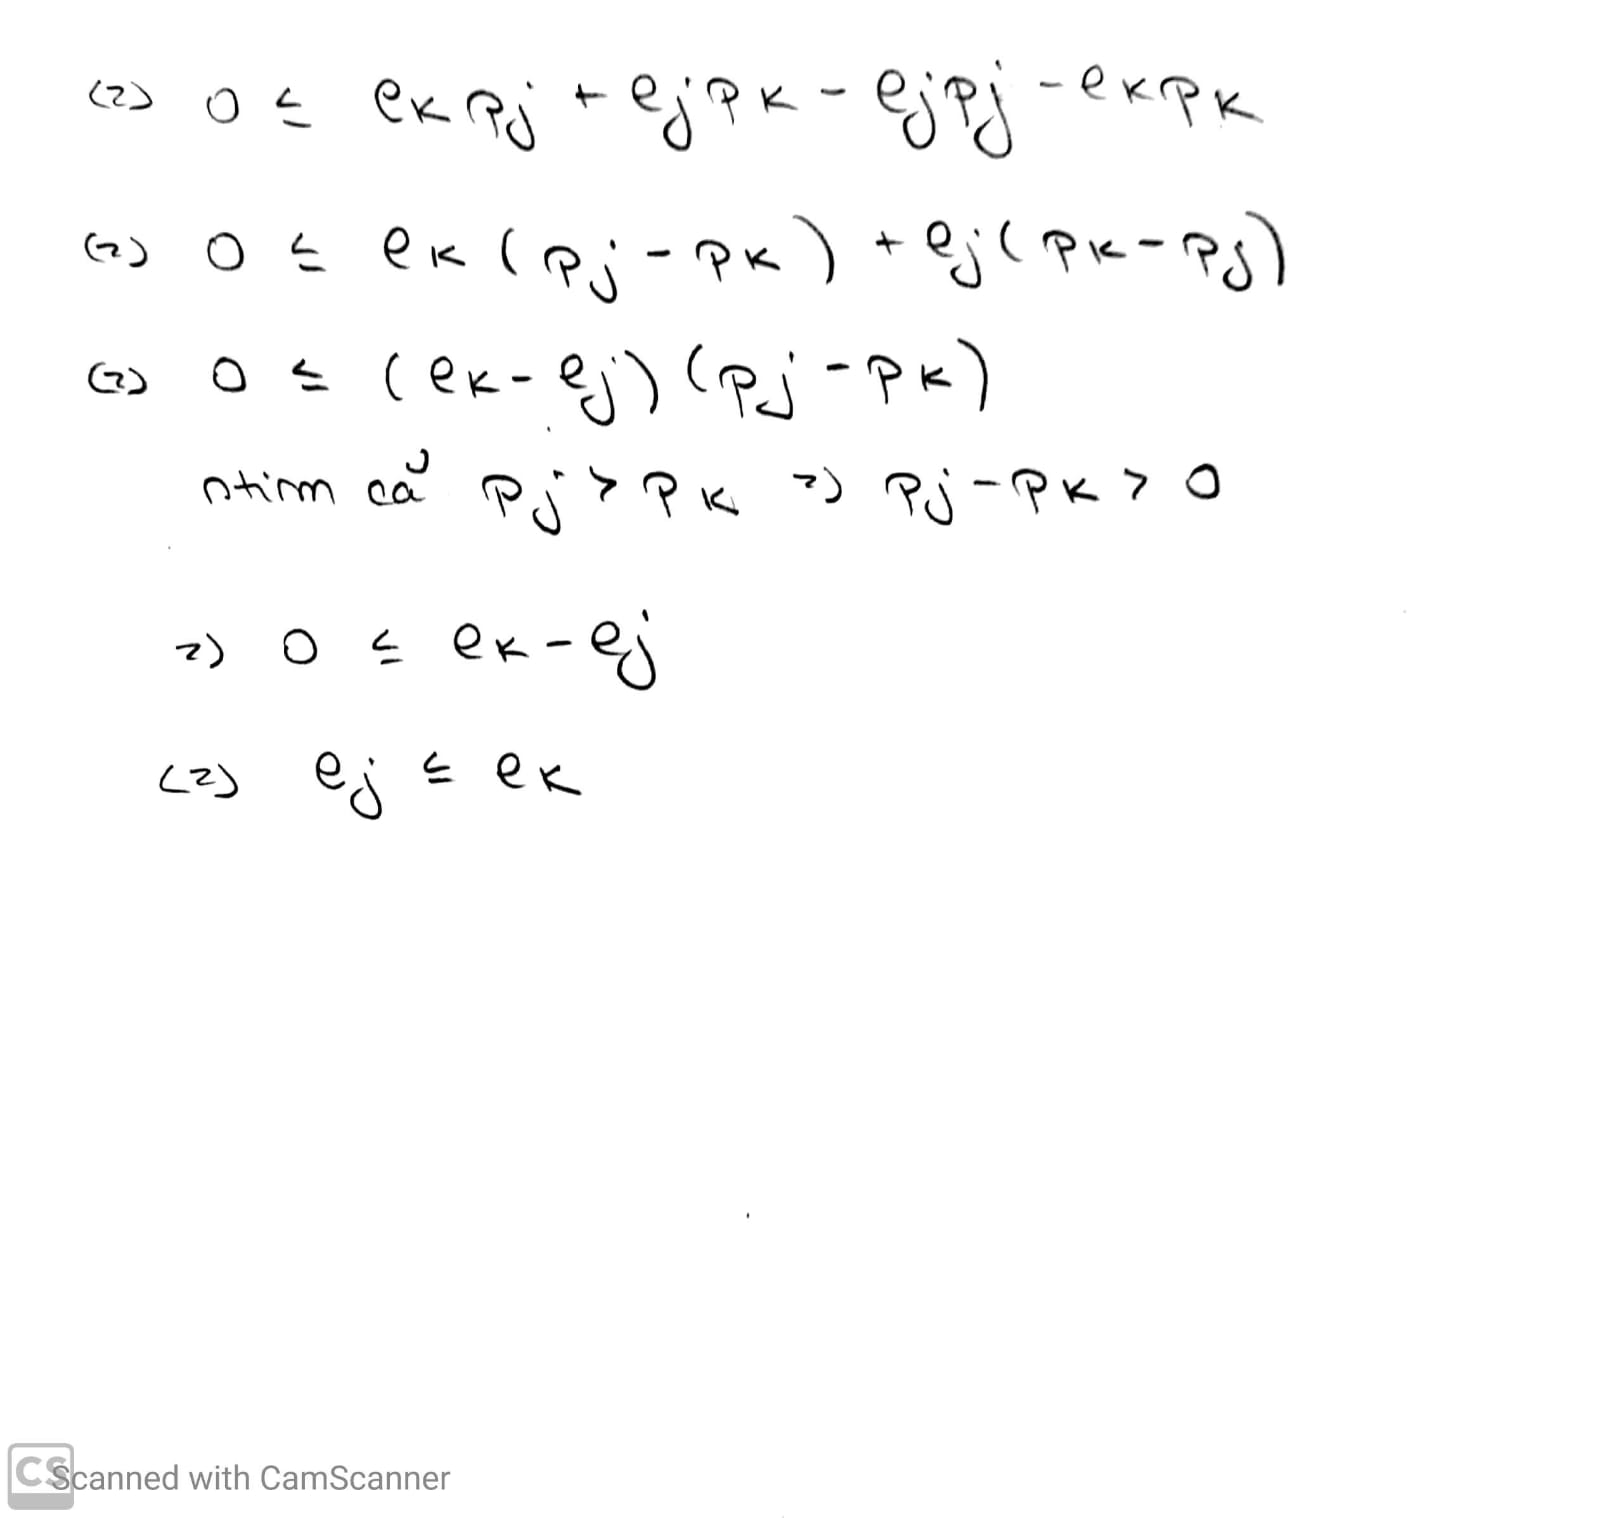 (=) 0 ≤ ek pj + ej pk - ej pj - ek pk
(=) 0 ≤ ek (pj - pk) + ej (pk - pj)
(=) 0 ≤ (ek - ej) (pj - pk)
știm că pj > pk => pj - pk > 0
=) 0 ≤ ek - ej
(=) ej ≤ ek
CS Scanned with CamScanner